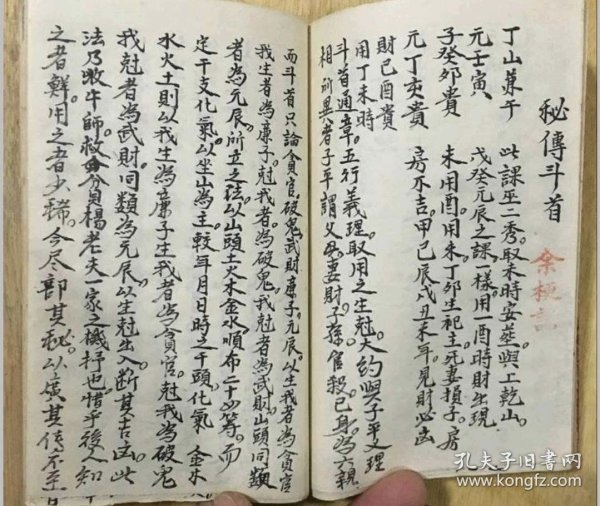 秘傳斗首
丁山兼午 此課巫二秀。取未時安葬。與上乾山。
元壬寅 戊癸元辰之課一樣。用一酉時財生現
子癸卯貴 未用酉用未。丁卯生祀主死妻損子房
元丁亥貴 房不吉。甲己辰戌丑未年見財必凶
財己酉貴
用丁未時
斗首通章。五行義理。取用之生尅。大約與子平之理
相所異者。子平謂父母妻財子孫。官殺己身為六親
而斗首只論貪官破鬼武財廉子元辰。以生我者為貪官
我生者為廉子。尅我者。為破鬼。我尅者為武財。山頭同類
者為元辰。所立之法。以山頭土火木金水順布二十四籌。而
定干支化氣。以坐山為主。較年月日時之干頭。化氣 金水
水火土則以我生為廉子生我者為貪官。尅我為破鬼
我尅者為武財。同類為元辰。以生尅出入斷其吉凶。此
法乃救貧楊老夫一家之機抒也。惜乎後人知
之者鮮。用之者少稀。今尽部其秘。以廣其傳。不至
孔夫子旧书网
www.kongfz.com